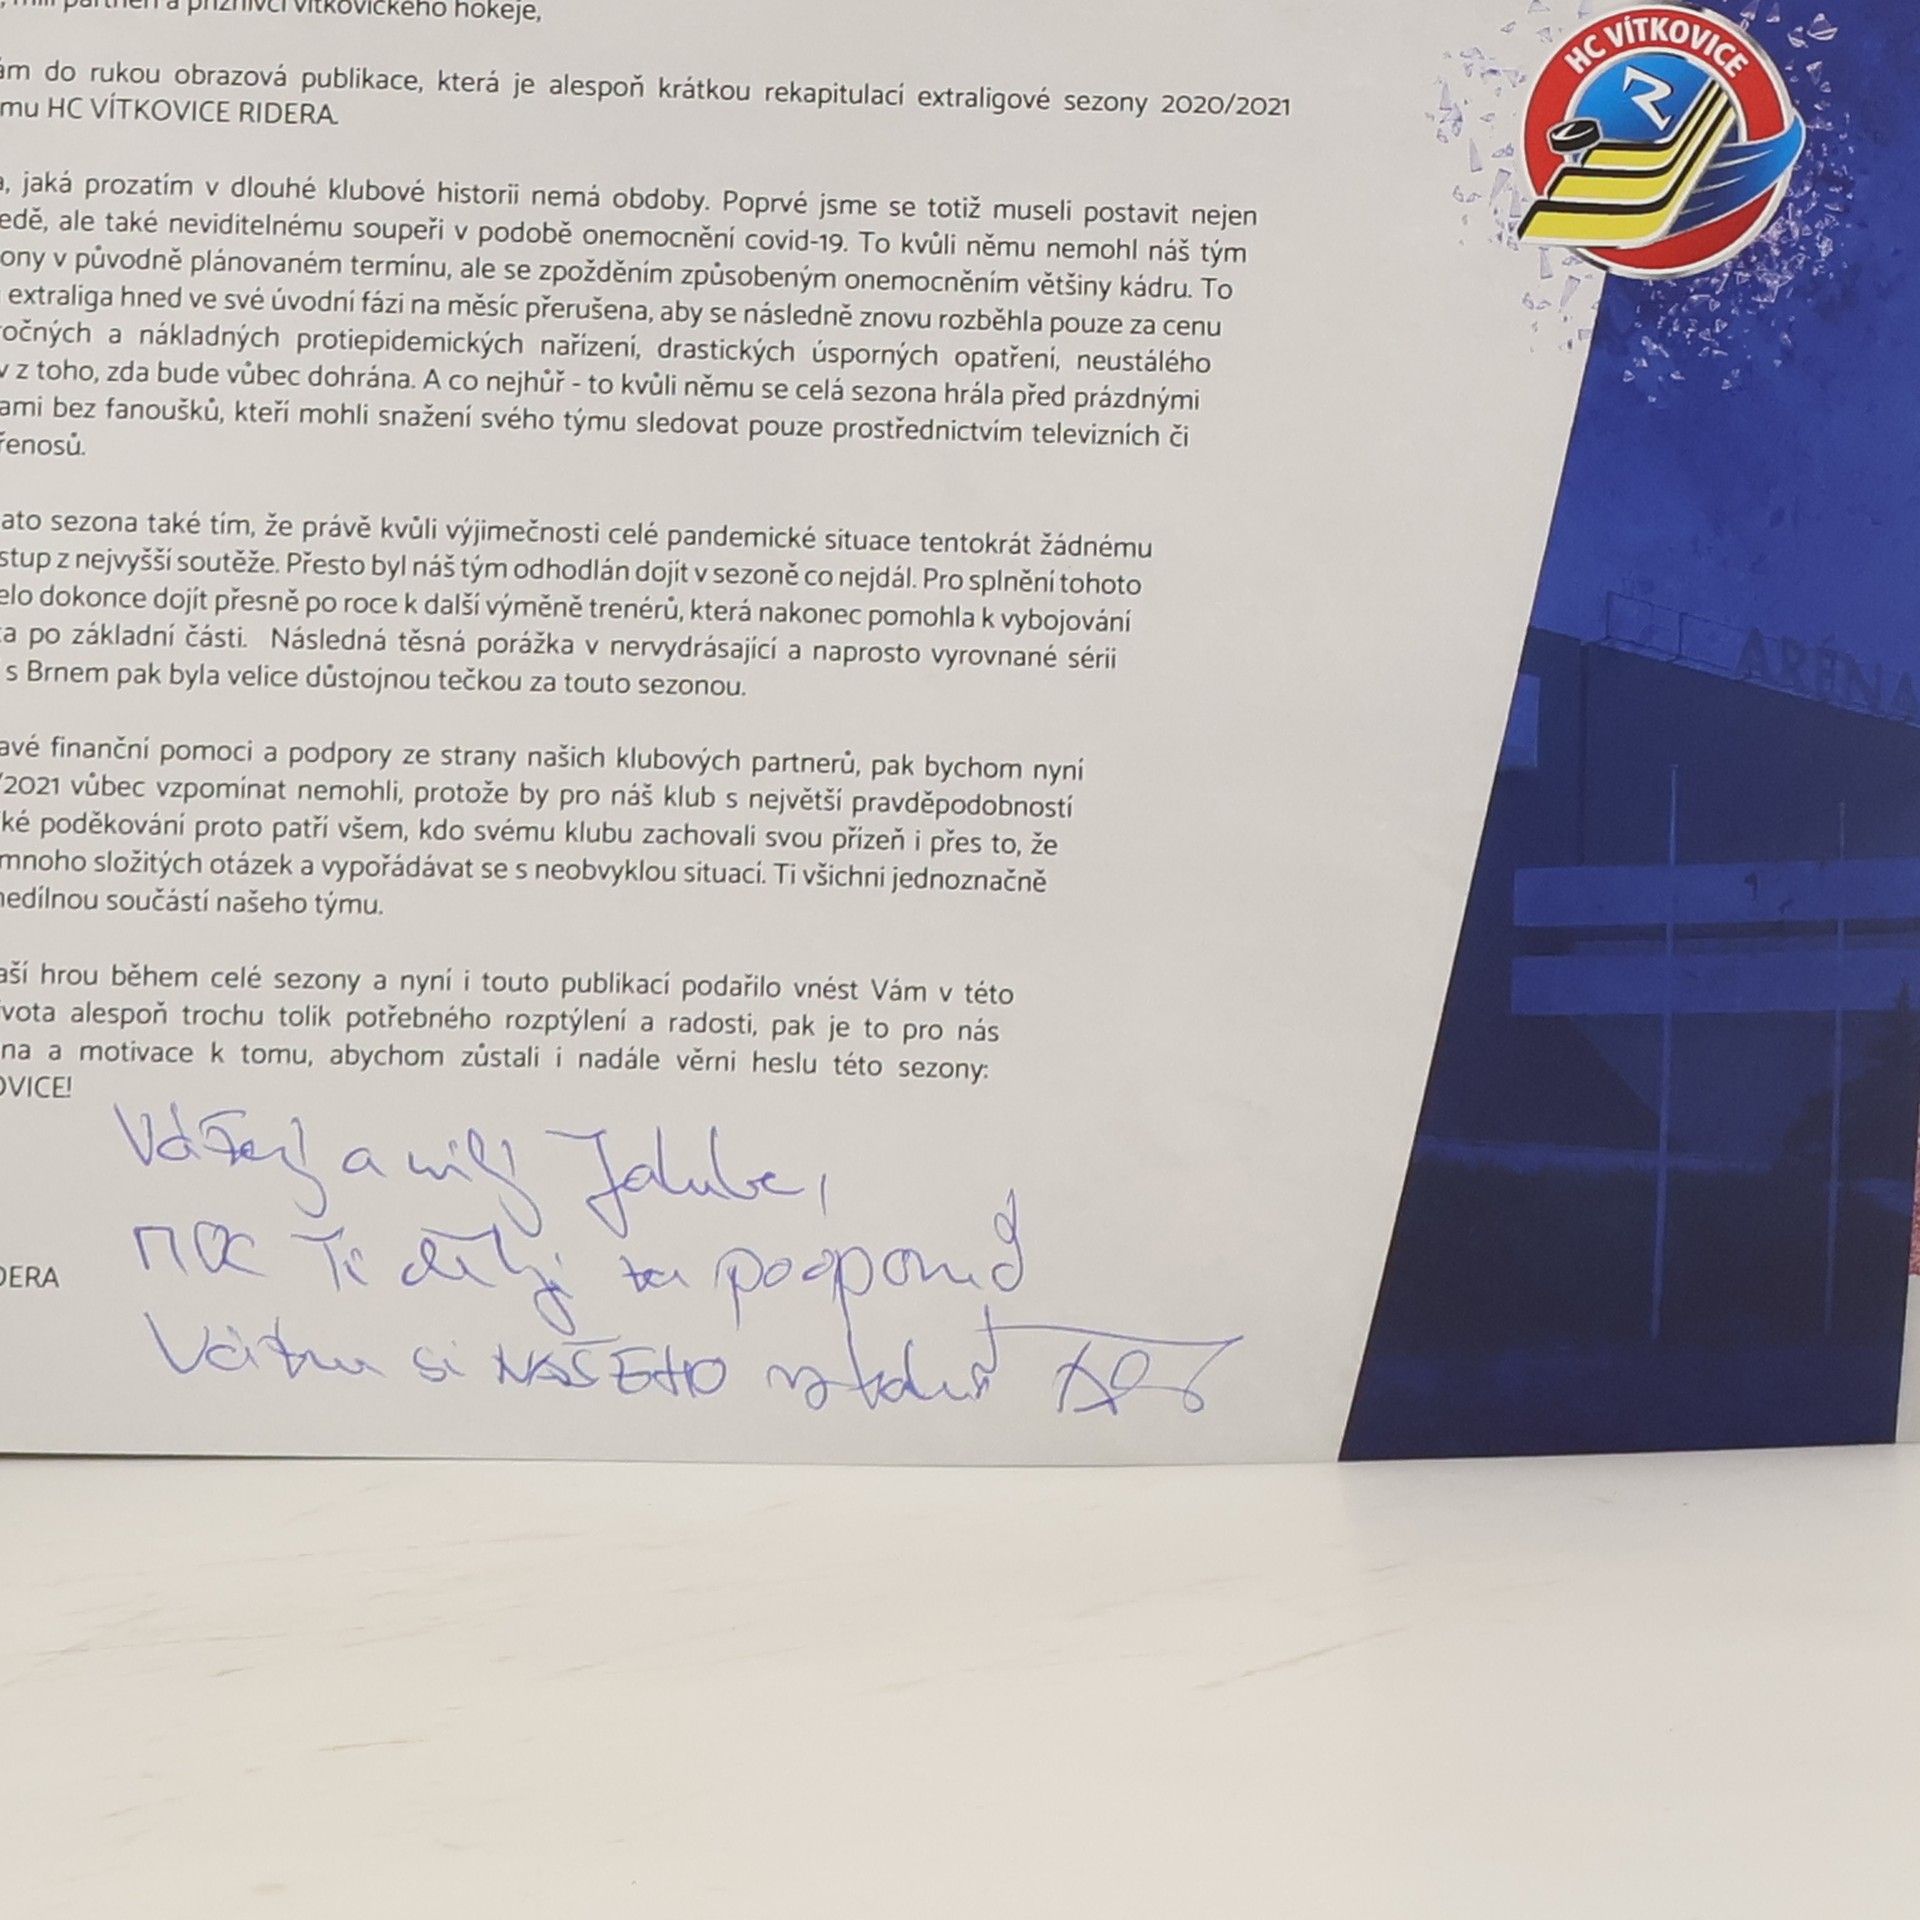 partneři a příznivci vítkovického hokeje,
ám do rukou obrazová publikace, která je alespoň krátkou rekapitulací extraligové sezony 2020/2021
mu HC VÍTKOVICE RIDERA.
a, jaká prozatím v dlouhé klubové historii nemá obdoby. Poprvé jsme se totiž museli postavit nejen
edě, ale také neviditelnému soupeři v podobě onemocnění covid-19. To kvůli němu nemohl náš tým
ony v původně plánovaném termínu, ale se zpožděním způsobeným onemocněním většiny kádru. To
extraliga hned ve své úvodní fázi na měsíc přerušena, aby se následně znovu rozběhla pouze za cenu
očných a nákladných protiepidemických nařízení, drastických úsporných opatření, neustálého
v z toho, zda bude vůbec dohrána. A co nejhůř - to kvůli němu se celá sezona hrála před prázdnými
ami bez fanoušků, kteří mohli snažení svého týmu sledovat pouze prostřednictvím televizních či
řenosů.
ato sezona také tím, že právě kvůli výjimečnosti celé pandemické situace tentokrát žádnému
stup z nejvyšší soutěže. Přesto byl náš tým odhodlán dojít v sezoně co nejdál. Pro splnění tohoto
elo dokonce dojít přesně po roce k další výměně trenérů, která nakonec pomohla k vybojování
ta po základní části. Následná těsná porážka v nervydrásající a naprosto vyrovnané sérii
s Brnem pak byla velice důstojnou tečkou za touto sezonou.
avé finanční pomoci a podpory ze strany našich klubových partnerů, pak bychom nyní
/2021 vůbec vzpomínat nemohli, protože by pro náš klub s největší pravděpodobností
ké poděkování proto patří všem, kdo svému klubu zachovali svou přízeň i přes to, že
mnoho složitých otázek a vypořádávat se s neobvyklou situací. Ti všichni jednoznačně
nedílnou součástí našeho týmu.
aší hrou během celé sezony a nyní i touto publikací podařilo vnést Vám v této
ivota alespoň trochu tolik potřebného rozptýlení a radosti, pak je to pro nás
na a motivace k tomu, abychom zůstali i nadále věrni heslu této sezony:
OVICE!
Vážený a milý Jakube,
MOC Ti děkuji za podporu a
Vážím si NAŠEHO vztahu
DERA
HC VÍTKOVICE
ARÉNA